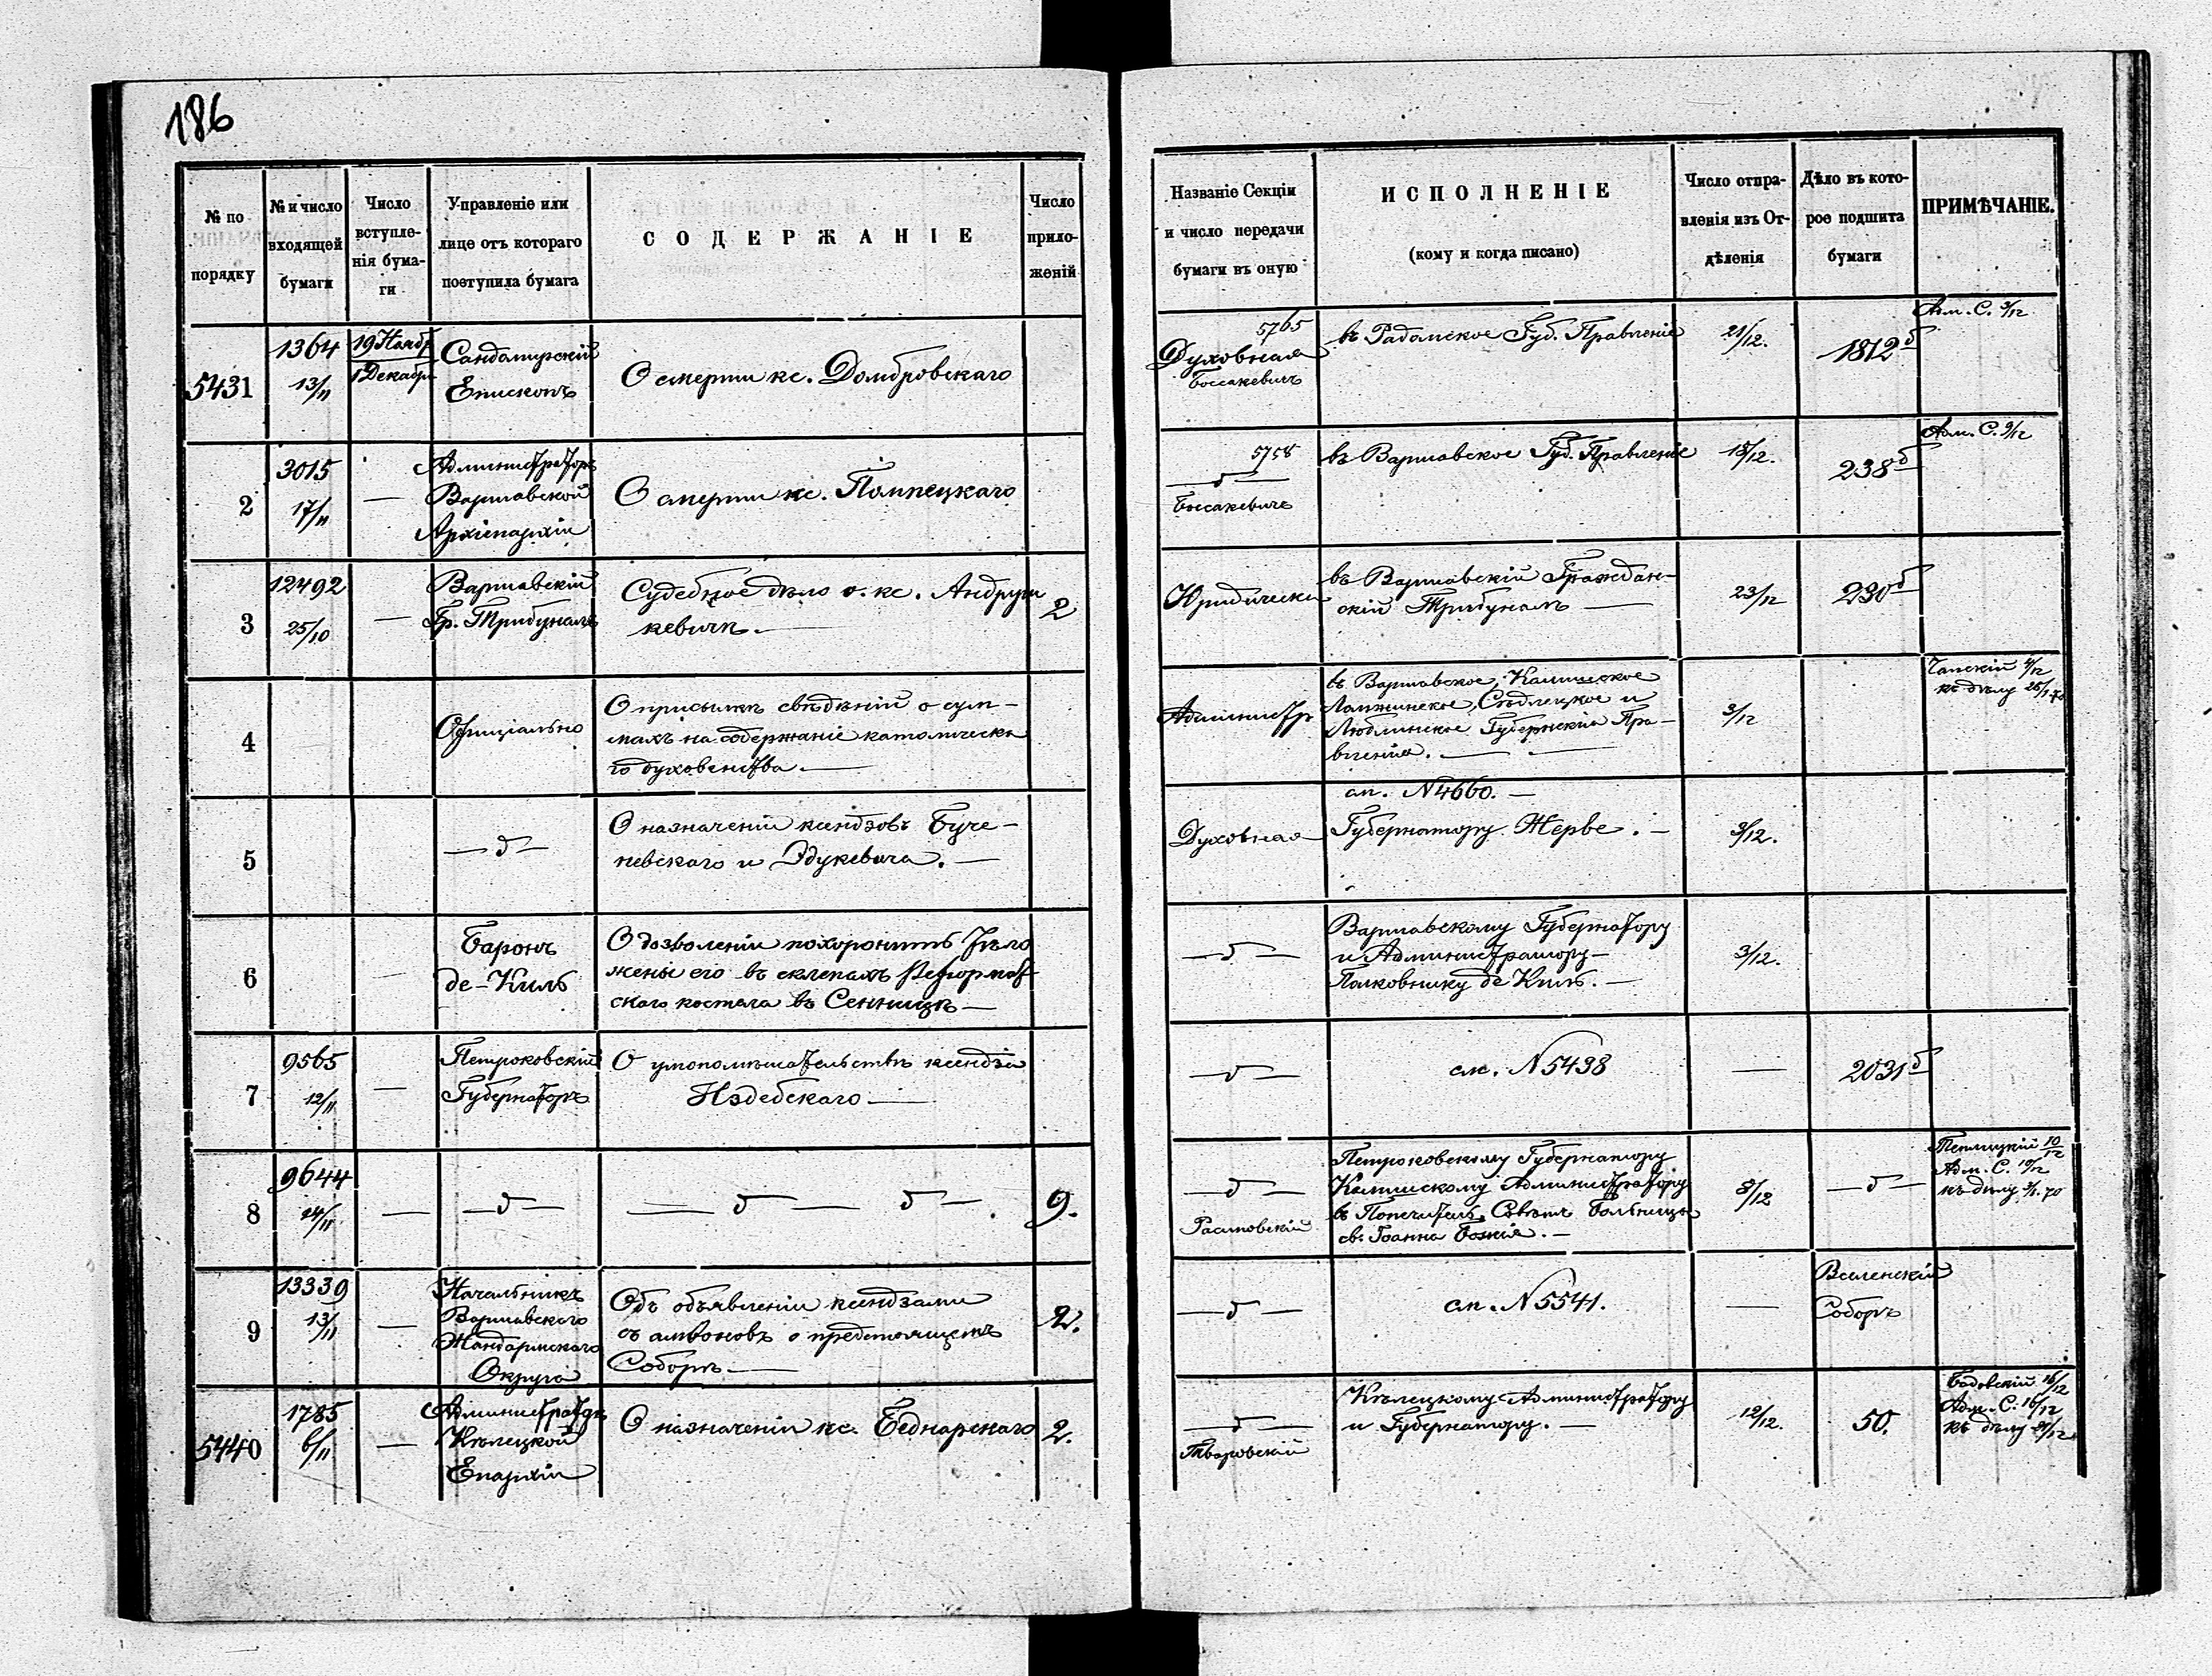 186
№ по порядку
№ и число входящей бумаги
Число вступленія бумаги
Управленіе или лице отъ котораго поступила бумага
СОДЕРЖАНІЕ
Число приложеній
Названіе Секціи и число передачи бумаги въ оную
ИСПОЛНЕНІЕ
(кому и когда писано)
Число отправленія изъ Отдѣленія
Дѣло въ которое подшита бумаги
ПРИМѢЧАНІЕ.
5431
1364
13/11
19 Нояб
1 Декабр
Сандомирскій
Епископъ
О смерти кс. Домбровскаго
5765
Духовная
Боссакевичъ
въ Радомское Губ. Правленіе
21/12.
1812 б
Адм. С. 3/12
2
3015
17/11
—
Администраторъ
Варшавской
Архіепархіи
О смерти кс.
5758
— д —
Боссакевичъ
въ Варшавское Губ. Правленіе
18/12.
238 б
Адм. С. 9/12
3
12492
25/10
—
Варшавскій
Гр. Трибуналъ
Судебное дѣло о. кс. Андруш
кевичѣ. —
2
Юридическ
въ Варшавскій Граждан-
скій Трибуналъ —
23/12
230 б
4
Официально
О присылкѣ свѣдѣній о сум-
махъ на содержаніе католическа
го духовенства. —
Администр
въ Варшавское, Калишское
Ломжинское, Сѣдлецкое и
Люблинское Губернскія Пра-
вленія. —
3/12
къ дѣлу
5
— д —
О назначеніи ксендзовъ Буче-
невскаго и Эдукевича. —
Духовная
см. N 4660. —
Губернатору Жерве. —
3/12.
6
Баронъ
де-Киль
О дозволеніи похоронить тѣло
жены его въ склепахъ Реформат
скаго костела въ Сенницѣ —
— д —
Варшавскому Губернатору
и Администратору —
Полковнику де Киль. —
3/12.
7
9565
12/11
—
Петроковскій
Губернаторъ
О умопомѣшательствѣ ксендза
Издебскаго —
— д —
см. N 5438
—
2031 б
8
9644
24/11
—
— д —
— д — д — .
9.
— д —
Петроковскому Губернатору
Калишскому Администратору
въ Попечитель. Совѣтъ Больницы
св. Іоанна Божія. —
8/12
— д —
10/12
Адм. С. 19/12
къ дѣлу 3/1. 70
9
13339
13/11
—
Начальникъ
Варшавского
Жандармского
Округа
Объ объявленіи ксендзами
съ амвоновъ о предстоящемъ
Соборѣ —
2.
— д —
см. N 5541.
—
Вселенскій
Соборъ
5440
1785
6/11
—
Администраторъ
Кѣлецкой
Епархіи
О назначеніи кс. Беднарскаго
2.
— д —
Тваровскій
Кѣлецкому Администратору
и Губернатору. —
12/12.
50.
16/12
Адм. С. 16/12
къ дѣлу 31/12